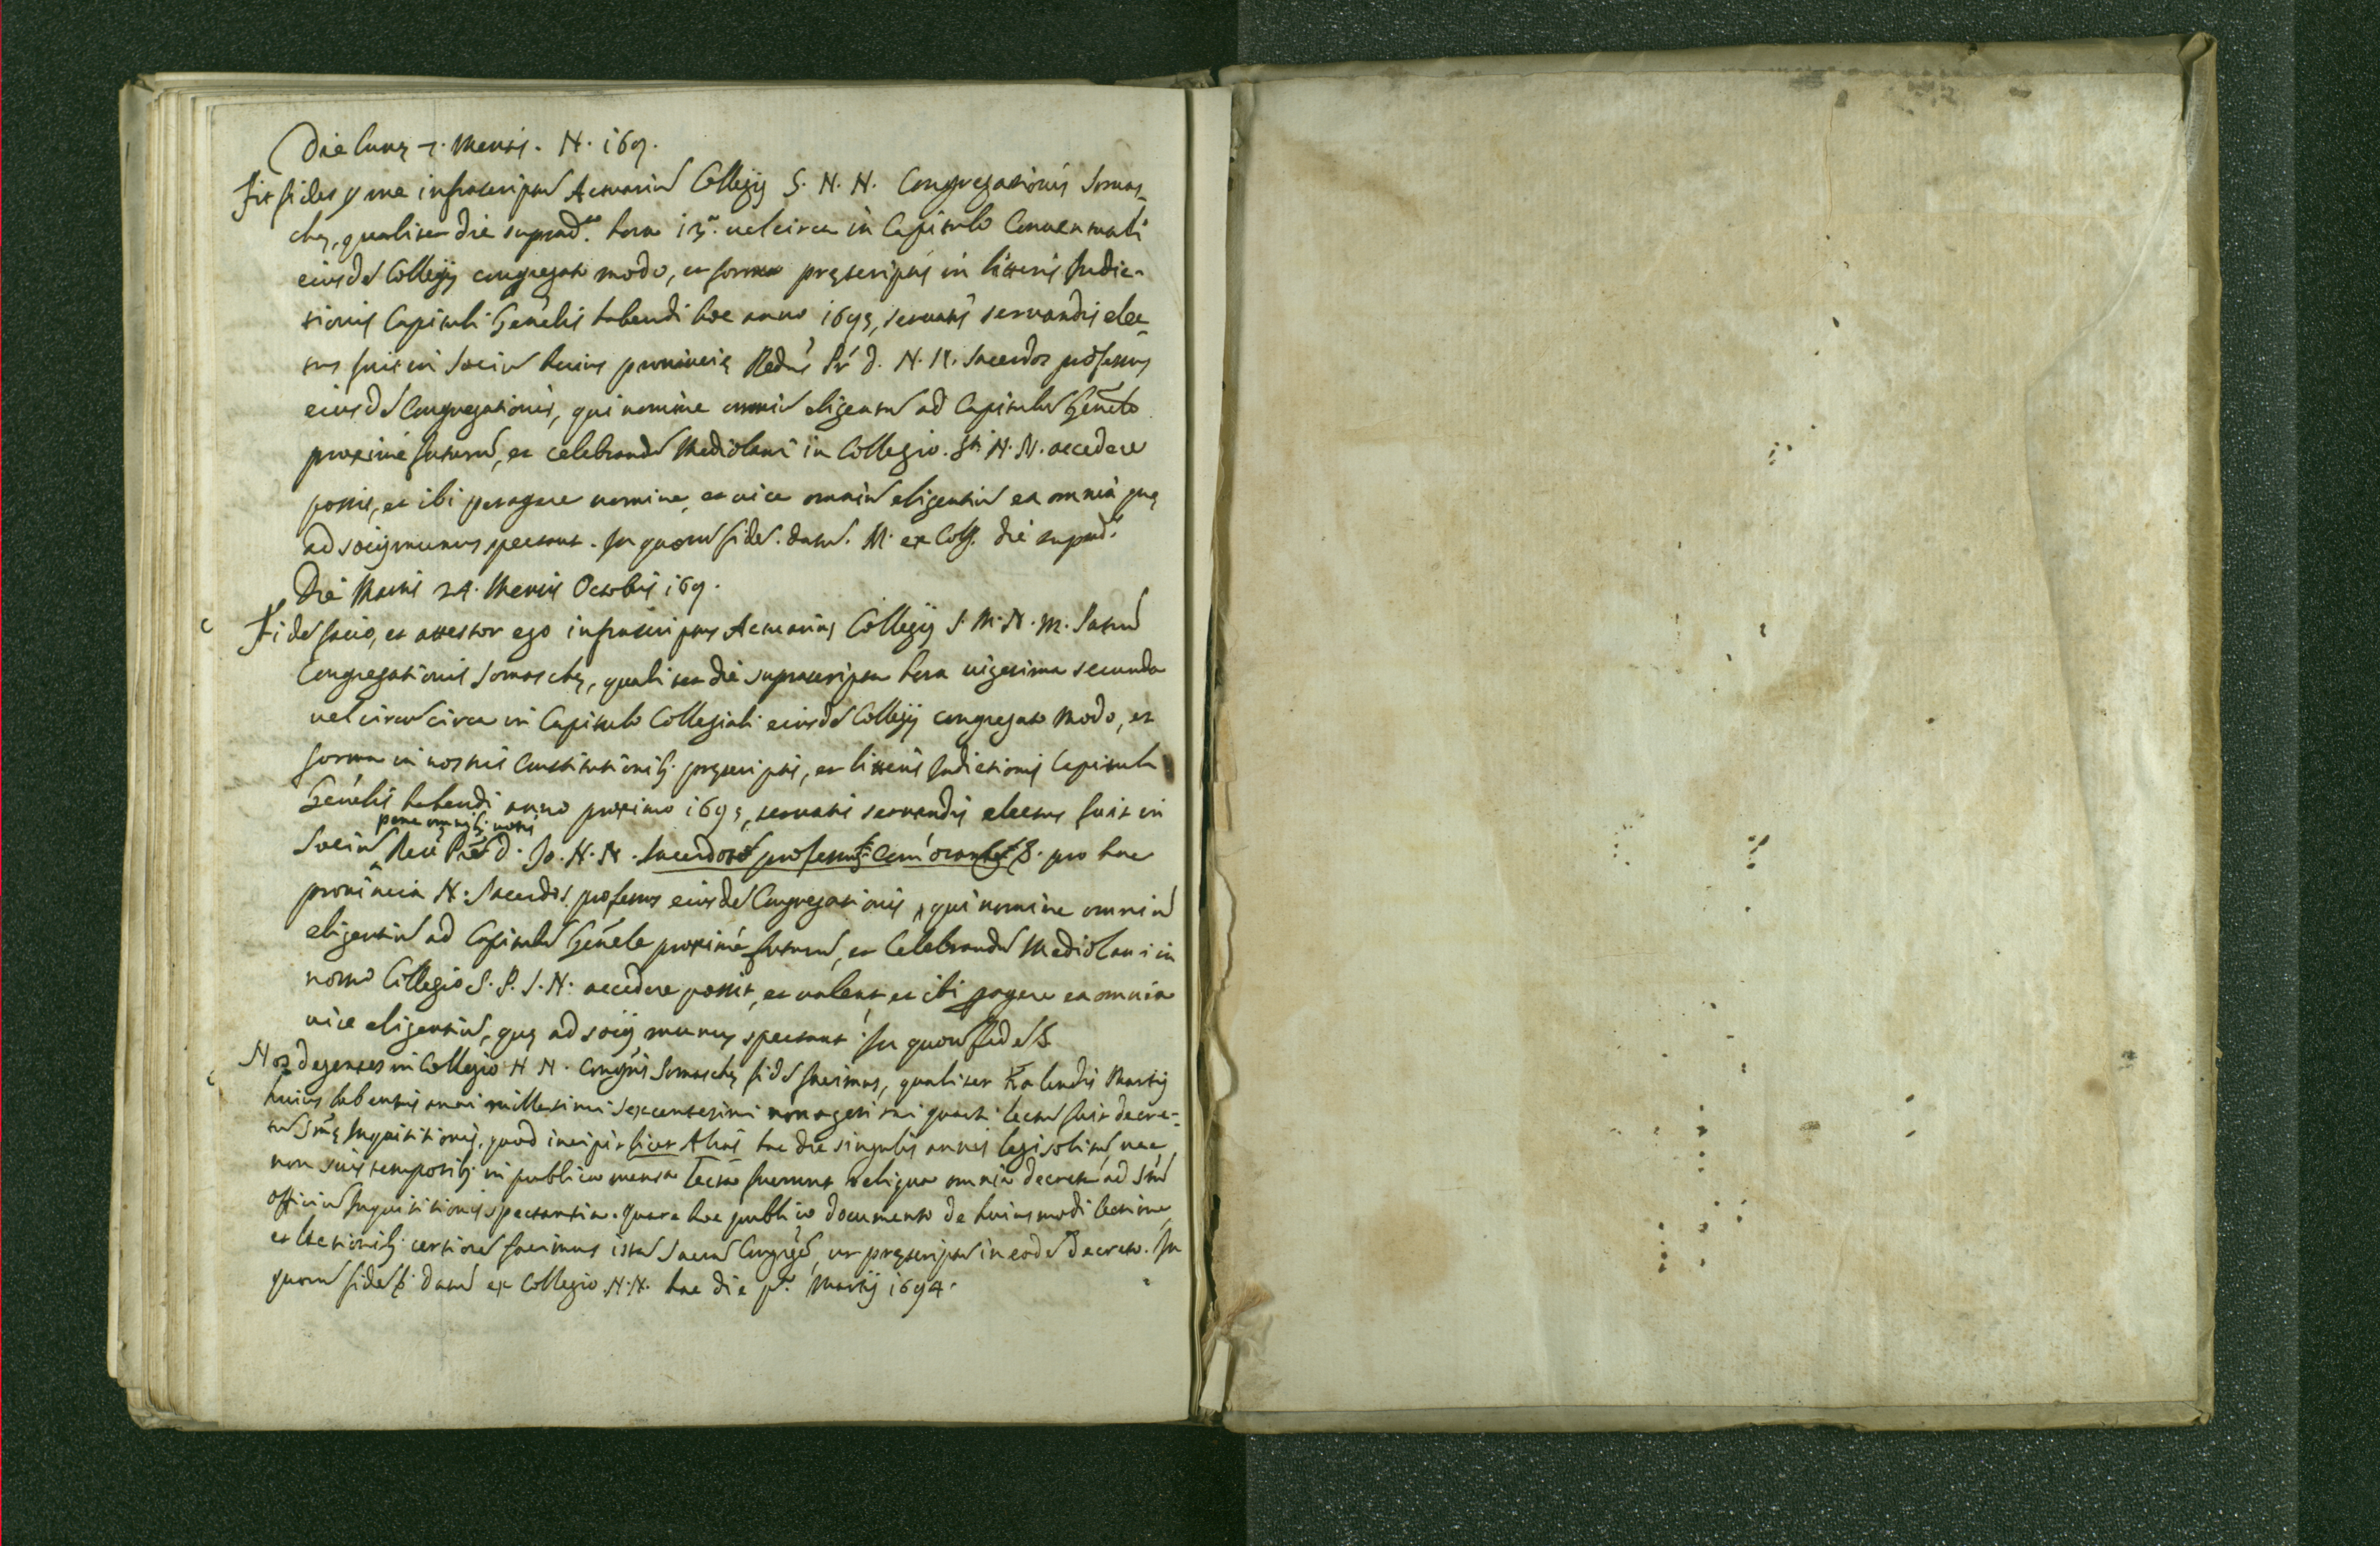 Die lunę 7. Mensis. N. 169.
Fit fides p me infrascriptū Actuariū Collegij S. N. N. Congregationis Somas-
chę, qualiter die suprad.ta hora 13.a uel circa in Capitulo Conuentuali
eiusdē Collegij congregato modo, et forma pręscriptis in litteris Indic-
tionis Capituli Gen̄elis habendi hoc anno 1693, seruatis seruandis elec-
tus fuit in Sociū huius prouincię Redus Pr D. N. N. Sacerdos professus
eiusdē Congregationis, qui nomine omniū eligentiū ad Capitulū Gen̄ele
proximè futurū, et celebrandū Mediolani in Collegio. Sti N. N. accedere
possit, et ibi peragere nomine, et uice omniū eligentiū ea omnia quę
ad socij munus spectant. In quorū fidē. datū. N. ex Coll. die suprad.
Die Martis 24. Mensis Octobris 169.
Fidē facio, et attestor ego infrascriptus Actuarius Collegij S. M. N. M. Satū
Congregationis Somaschę, qualiter die suprascripta hora uigesima secunda
uel circa circa in Capitulo Collegiali eiusdē Collegij congregato modo, et
forma in nostris Constitutionib; pręscriptis, et litteris Indictionis Capituli
Gen̄elis habendi anno proximo 1693, seruatis seruandis electus fuit in
pene omnib; uotis
Sociū D. Jo. N. N. Sacerdos professus pro hac
prouincia N. Sacerdos professus eiusdē Congregationis, qui nomine omniū
eligentiū ad Capitulū Gen̄ele proximè futurū, et Celebrandū Mediolani in
nostro Collegio S. P. S. N. accedere possit, et ualeat et ibi pagere ea omnia
uice eligentiū, quę ad socij munus spectant. In quorū fidē &
Nos degentes in Collegio N N. Congñis Somaschę fidē facimus, qualiter Kalendis Martij
huius labentis anni millesimi sexcentesimi nonagesimi quarti lectū fuit decre-
tū Smę Inquisitionis, quod incipit licet Alias hac die singulis annis legi solitū, nec
non suis temporib; in publica mensa lecta fuerunt reliqua omnia decreta ad Stū
officiū Inquisitionis spectantia. Quare hoc publico documento de huiusmodi lectione
et lectionib; certiorē facimus istā Sacrā Congregē, ut pręscriptū in eodē decreto. In
quorū fidē &. datū ex Collegio N. N. hac die p.a Martij 1694.